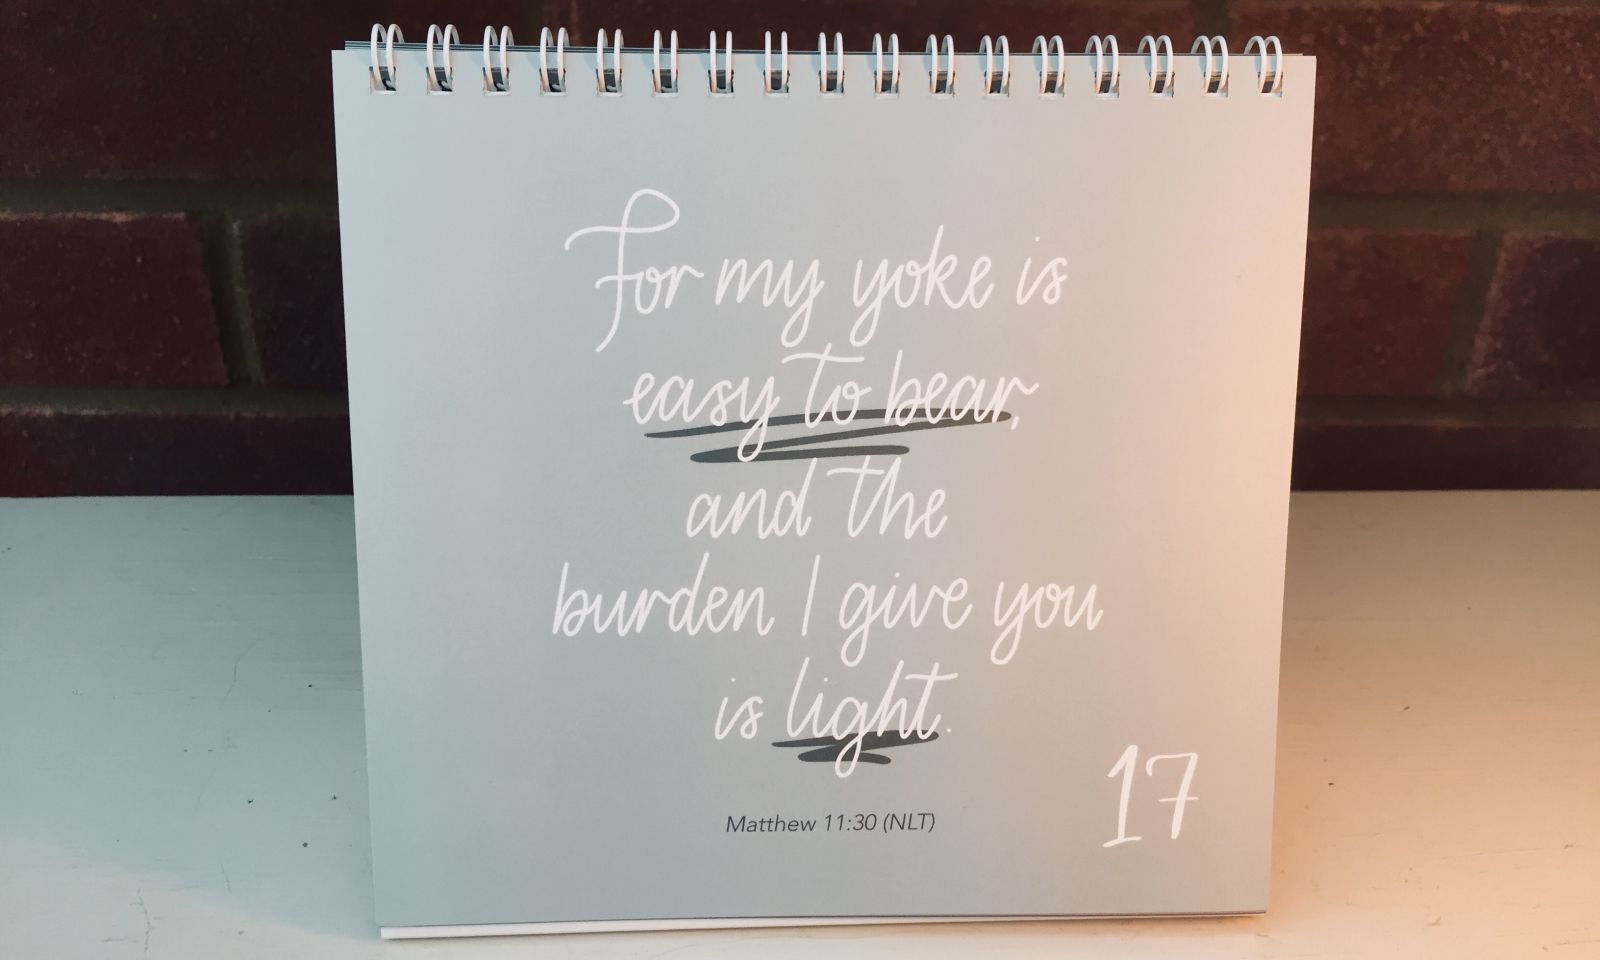 For my yoke is
easy to bear,
and the
burden I give you
is light.
Matthew 11:30 (NLT)
17